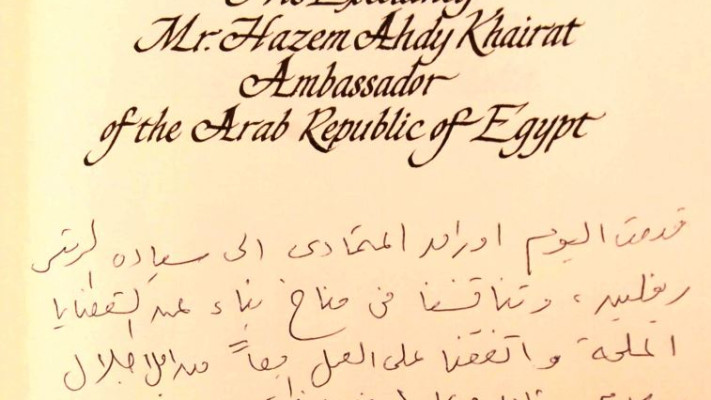 His Excellency
Mr. Hazem Ahdy Khairat
Ambassador
of the Arab Republic of Egypt
قدمت اليوم اوراق اعتمادى الى سيادة الرئيس
ريفلين، وتناقشنا فى مناخ بناء عن القضايا
الملحة واتفقنا على العمل معاً من اجل احلال